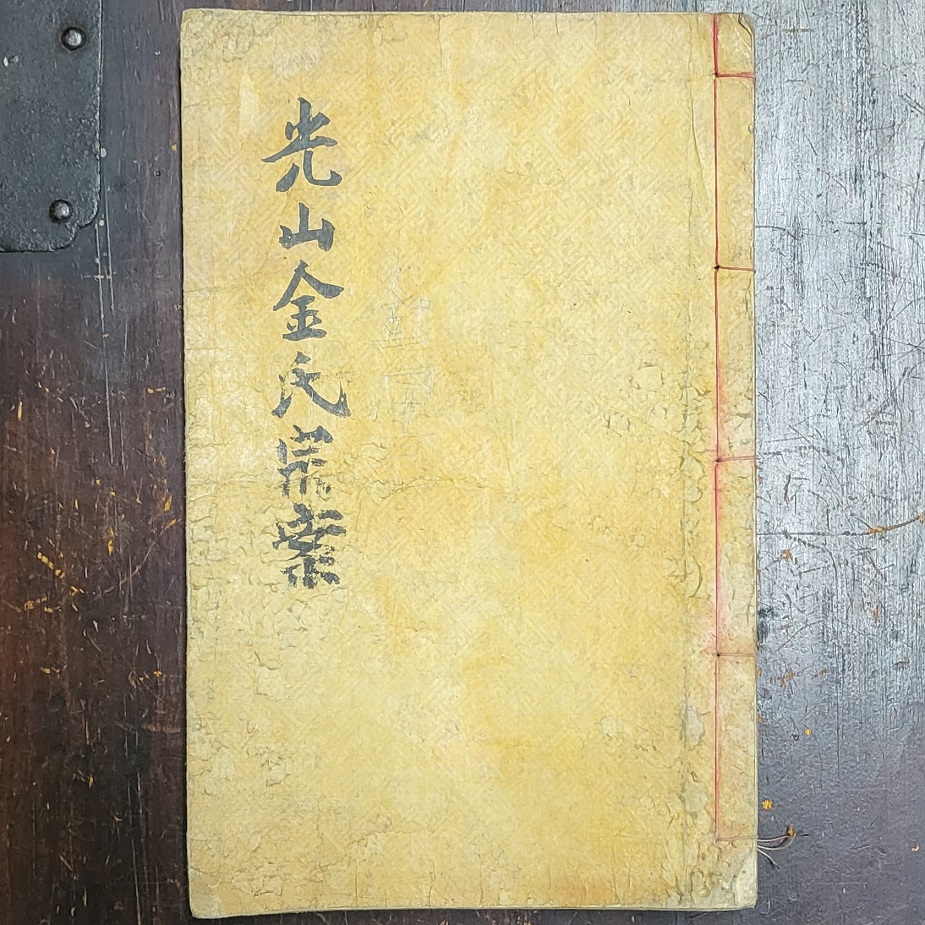 光山金氏宗案